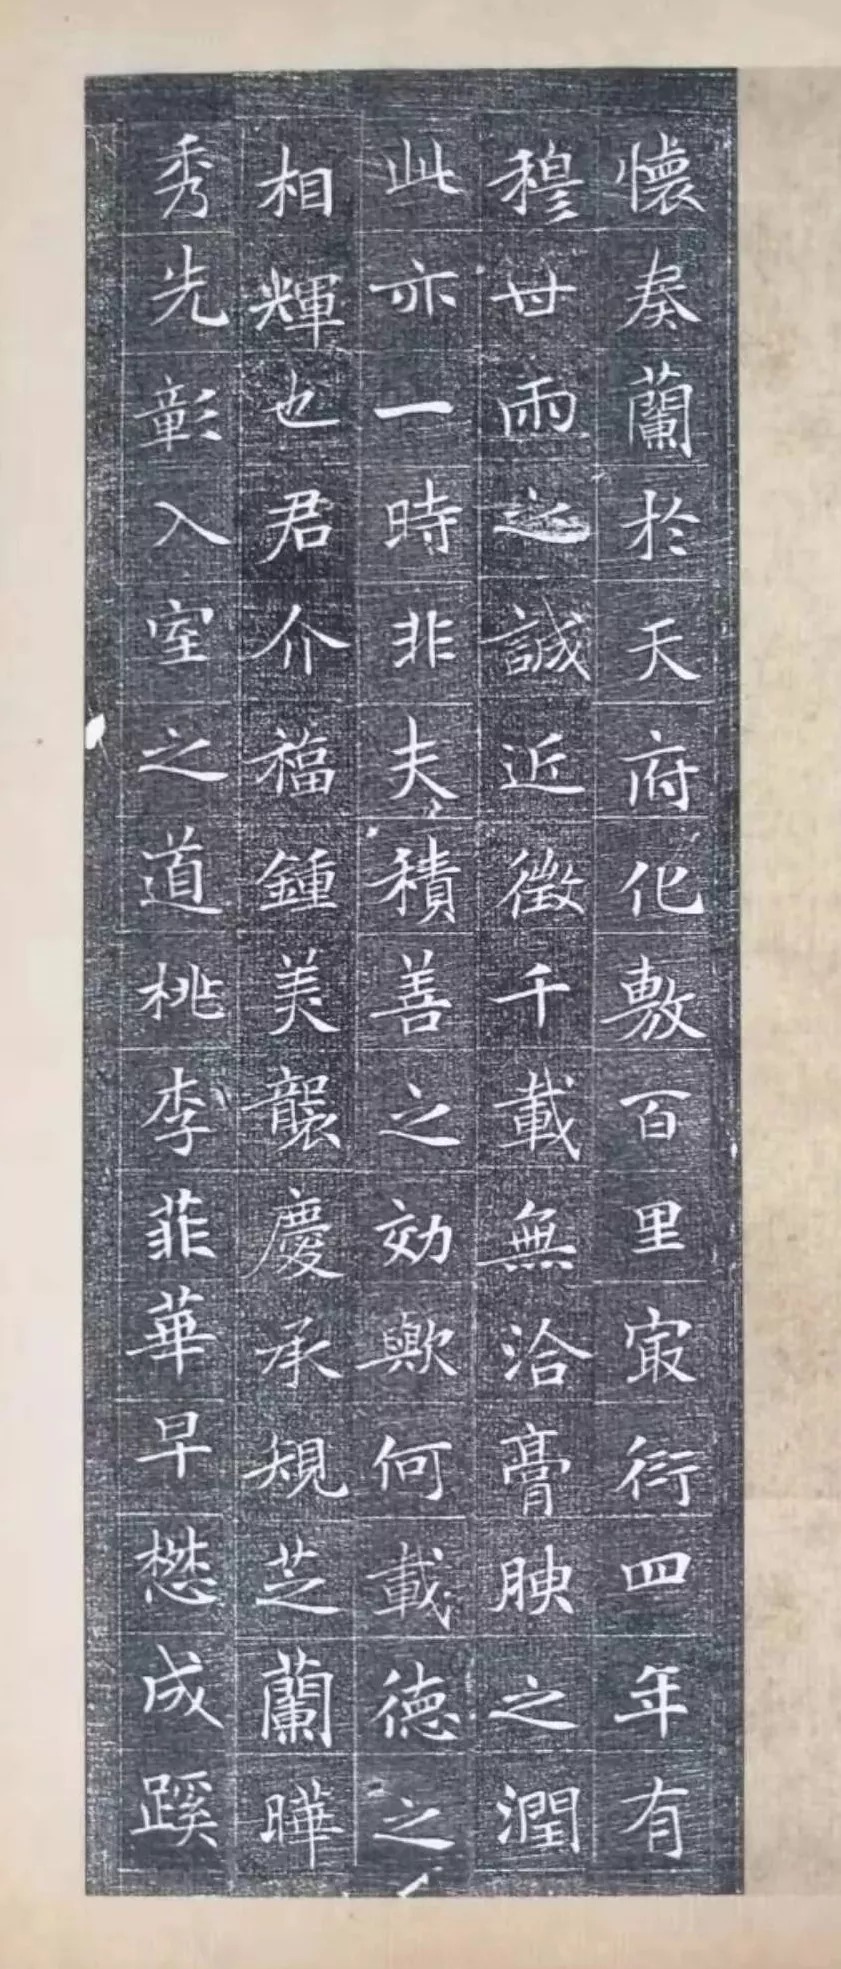 懷奏蘭於天府化敷百里㝡衍四年有
穆丗雨之誠近徵千載無洽膏腴之潤
此亦一時非夫積善之効歟何載德之
相輝也君介福鍾美襲慶承規芝蘭曄
秀先彰入室之道桃李菲華早懋成蹊